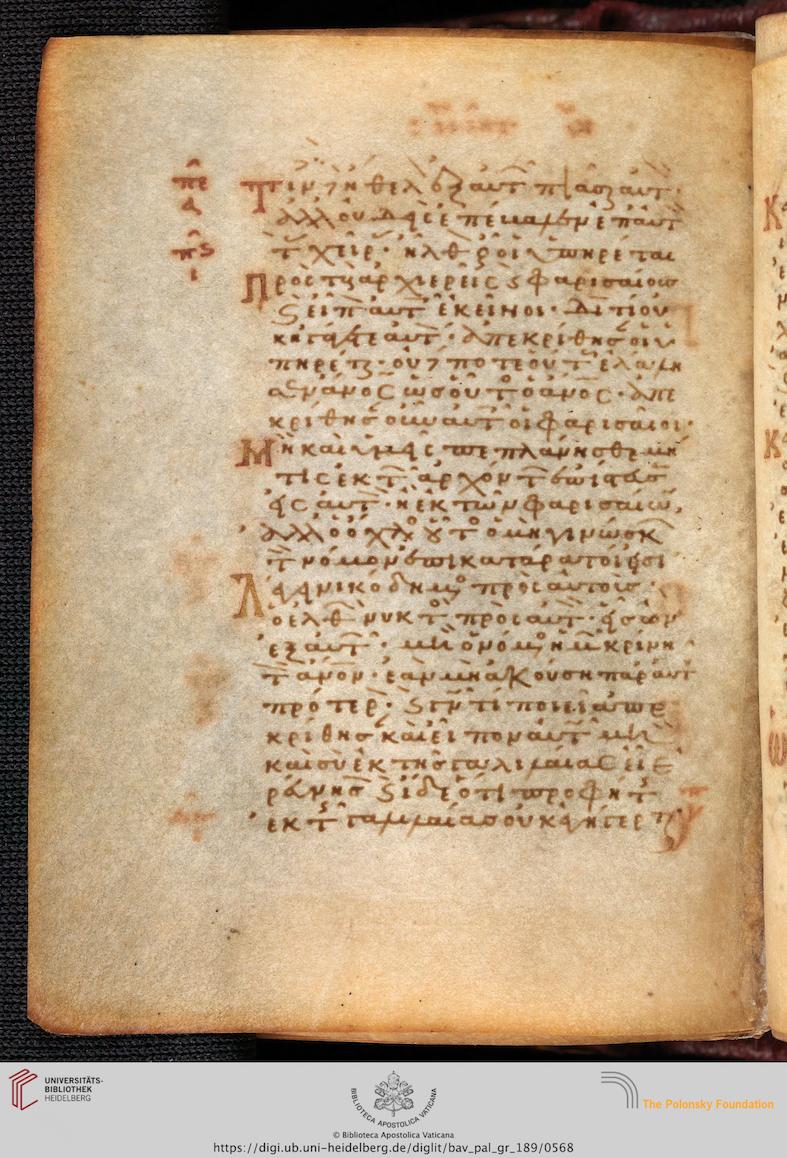 πε
α
πϛ
ι
Τινὲς ἤθελον ἐξ αὐτ πιάσαι αὐτ·
ἀλλ οὐδεὶς ἐπέβαλεν ἐπ αὐτ
τ χεῖρ· ἦλθ οὖν οἱ ὑπηρέται
Πρὸς τοὺς ἀρχιερεῖς ϗ φαρισαίους
ϗ εἶπ αὐτ ἐκεῖνοι· διατί οὐκ
ἠγάγετε αὐτ· ἀπεκρίθησ οἱ ὑ
πηρέται· οὐδέποτε οὕτ ἐλάλη
σεν ἄνος ὡς οὗτος ὁ ἄνος· ἀπε
κρίθησ οὖν αὐτ οἱ φαρισαῖοι·
Μὴ καὶ ὑμεῖς πεπλάνησθε μή
τις ἐκ τ ἀρχόντ ἐπίστευσ
εἰς αὐτ· ἢ ἐκ τῶν φαρισαίων
ἀλλ ὁ ὄχλ οὗτος ὁ μὴ γινώσκ
τ νόμον ἐπικατάρατοι εἰσι
Λέγει νικόδημος πρὸς αὐτούς·
ὁ ἐλθ νυκτὸς πρὸς αὐτ· εἷς ὢν
ἐξ αὐτ· μὴ ὁ νόμος ἡμ κρίνει
τ ἄνον· ἐὰν μὴ ἀκούσῃ παρ αὐτ
πρότερ· ϗ γν τί ποιεῖ ἀπε
κρίθησ καὶ εἶπον αὐτ μὴ
καὶ σὺ ἐκ τῆς γαλιλαίας εἶ ἐ
ραύνησ ϗ ἴδε ὅτι προφήτ
ἐκ τ γαλιλαίας οὐκ ἐγήγερτ
UNIVERSITÄTS-
BIBLIOTHEK
HEIDELBERG
BIBLIOTECA APOSTOLICA VATICANA
The Polonsky Foundation
© Biblioteca Apostolica Vaticana
https://digi.ub.uni-heidelberg.de/diglit/bav_pal_gr_189/0568